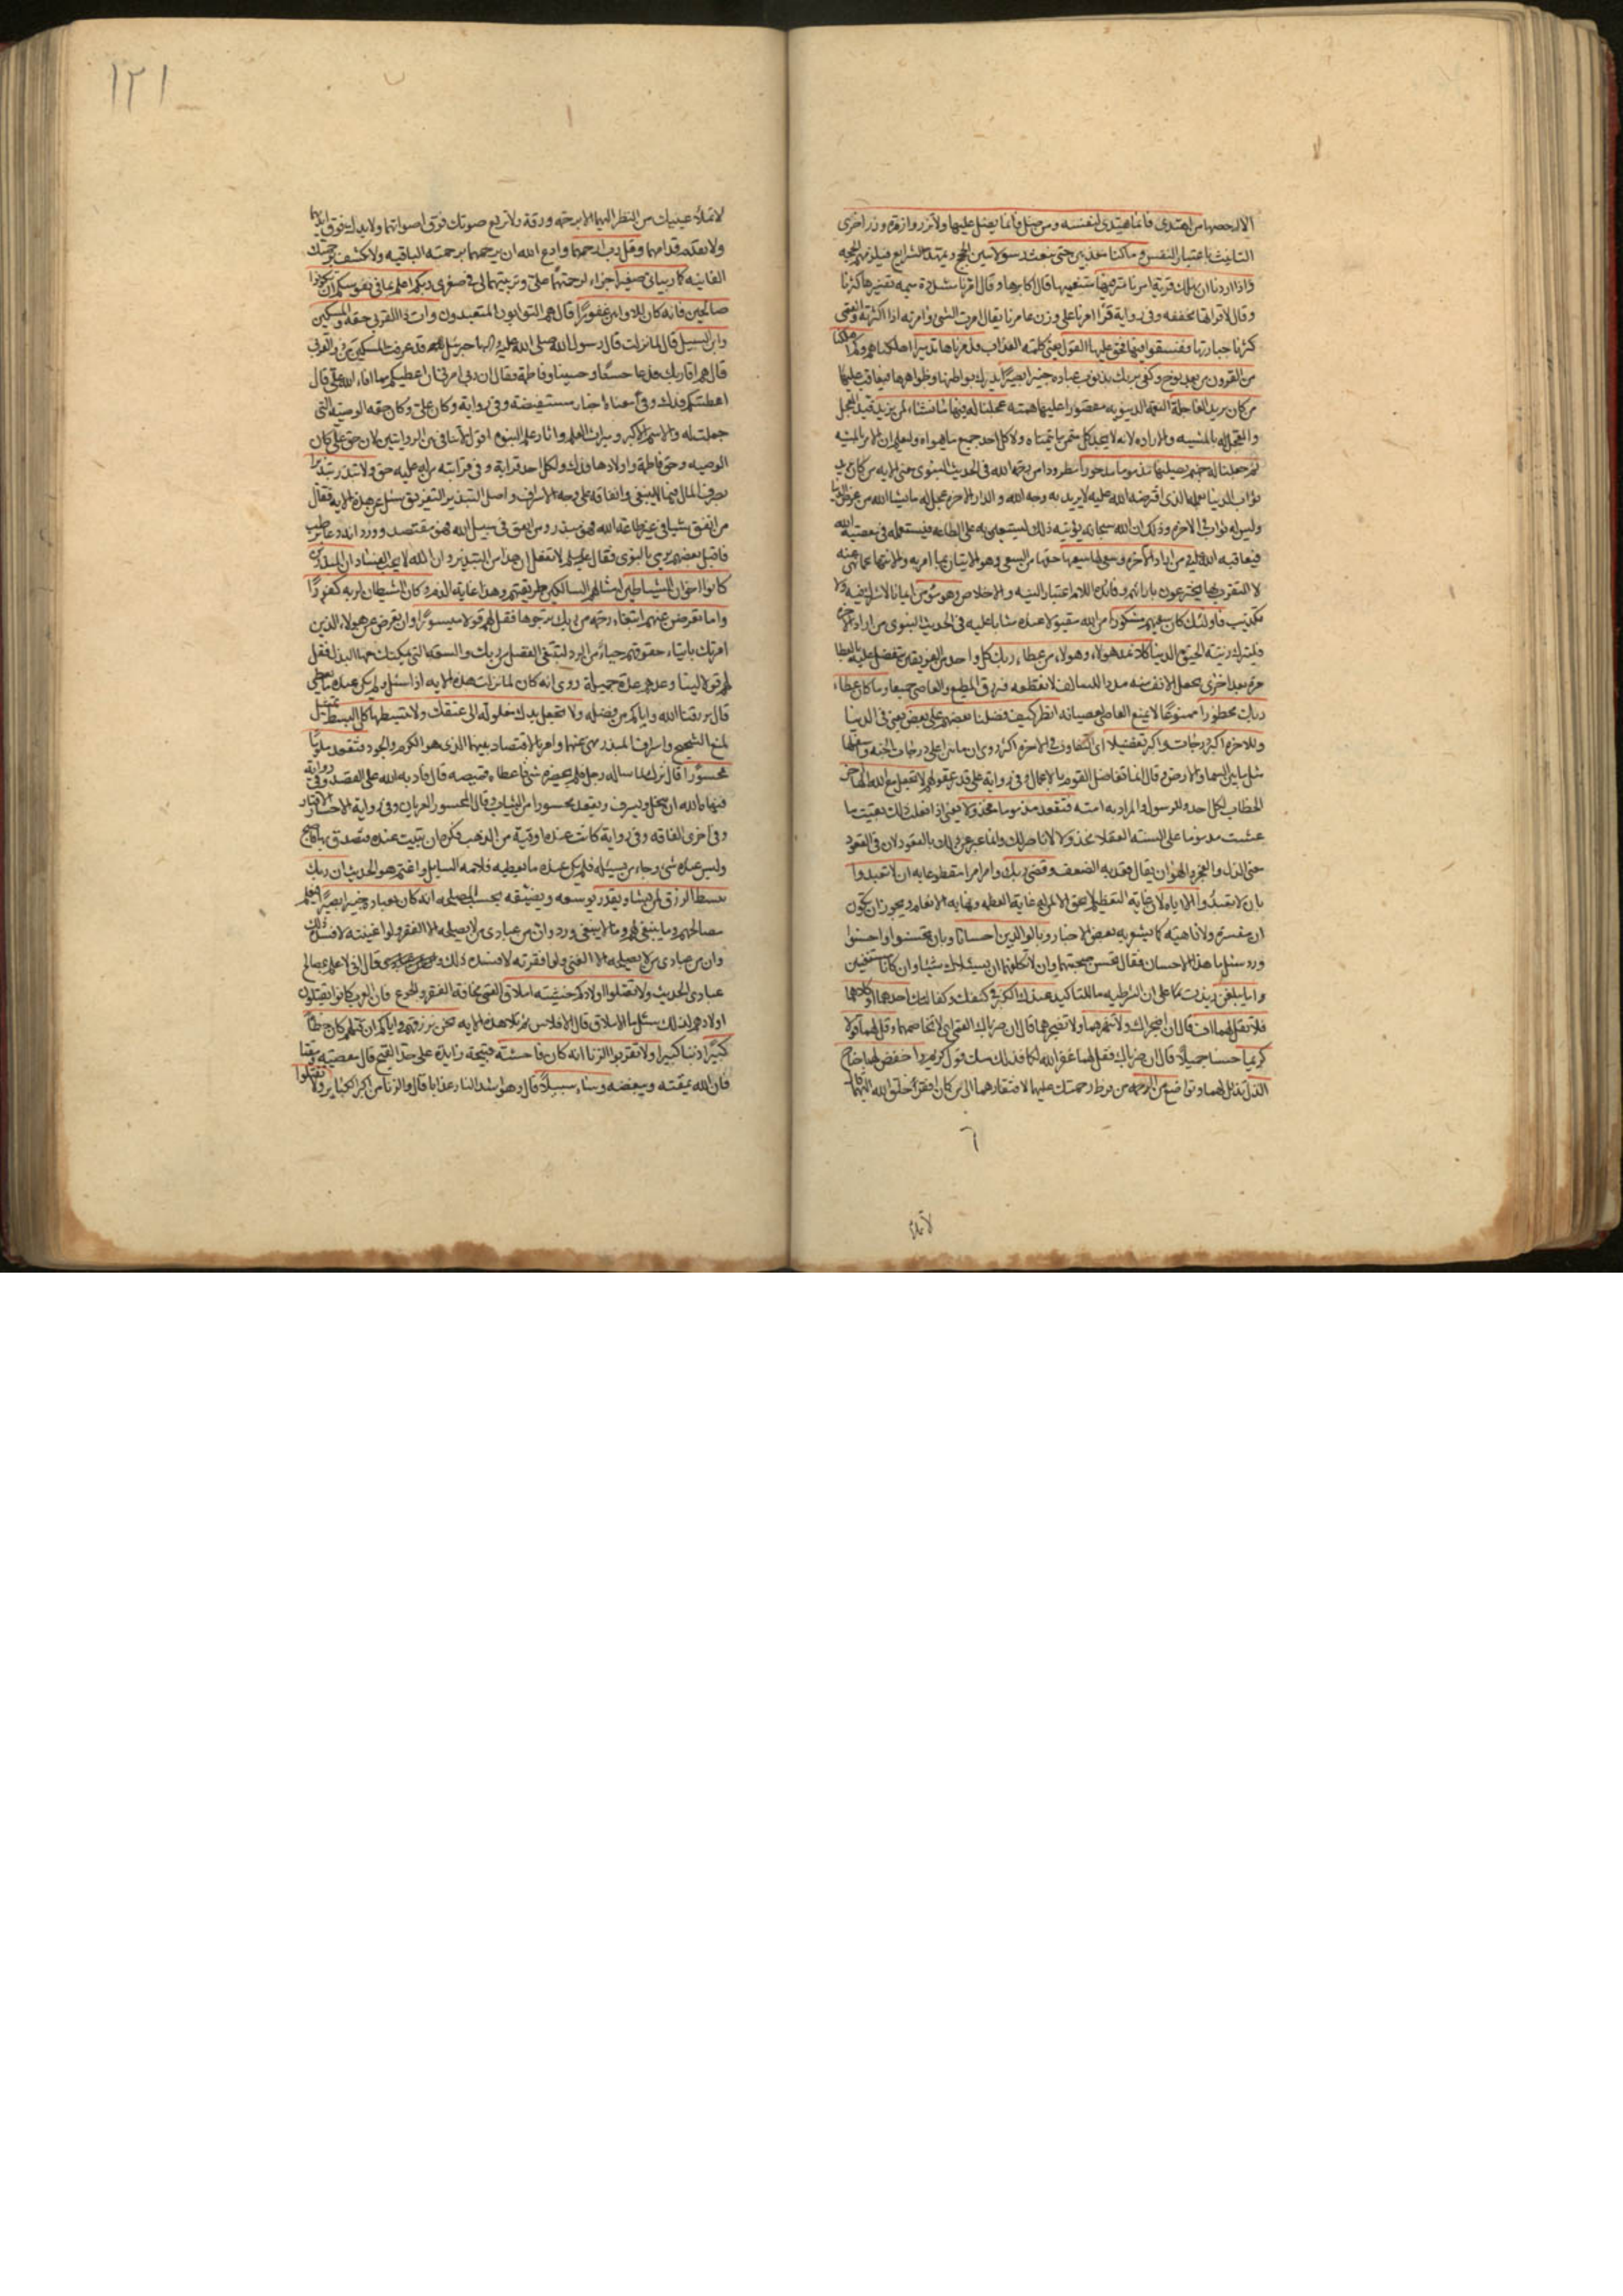 الا احصيها من اهتدى فانما يهتدى لنفسه ومن ضل فانما يضل عليها ولا تزر وازرة وزر اخرى
التانيث باعتبار النفس وما كنا معذبين حتى نبعث رسولا يبين الحجج ويمهد الشرايع فيلزمهم الحجة
واذا اردنا ان نهلك قرية امرنا مترفيها متنعميها قال اكابرها وقال امرنا مشددة ميمه تفسيرها كثرنا
وقال لا قراتها مخففه وفى رواية قرا امرنا على وزن عامرنا يقال امرت الشى وامرته اذا اكثرته
كثرنا جبابرتها ففسقوا فيها فحق عليها القول يعنى كلمته العذاب فدمرناها تدميرا اهلكناها وكم اهلكنا
من القرون من بعد نوح وكفى بربك بذنوب عباده خبيرا بصيرا يدرك بواطنها وظواهرها فيعاقب عليها
من كان يريد العاجلة النعمة الدنيويه مقصورا عليها همته عجلنا له فيها ما نشاء لمن نريد قيد المعجل
والمعجل له بالمشيه والاراده لانه لا يجد كل متمن ما يتمناه ولا كل احد جميع ما يهواه وليعلم ان الامر بالمشيه
ثم جعلنا له جهنم يصليها مذموما مدحورا مطرودا من رحمة الله فى الحديث النبوى معنى الايه من كان يريد
ثواب الدنيا بعمله الذى افترضه الله عليه لا يريد به وجه الله والدار الاخرة عجل له ما يشا الله من عرض الدنيا
وليس له ثواب فى الاخرة وذلك ان الله سبحانه يؤتيه ذلك ليستعين به على الطاعه فيستعمله فى معصية الله
فيعاقبه الله عليه ومن اراد الاخرة وسعى لها سعيها حقها من السعى وهو الاتيان بما امر به والانتهاء عما نهى عنه
لا التقرب بما يخترعون بارائهم وفائدة اللام اعتبار النيه والاخلاص وهو مؤمن ايمانا لا شرك فيه ولا
تكذيب فاولئك كان سعيهم مشكورا من الله مقبولا عنده مثابا عليه فى الحديث النبوى من اراد الاخرة
فليترك زينة الحيوة الدنيا كلا نمد هولاء وهولاء من عطاء ربك كل واحد من الفريقين نتفضل عليه بالعطا
مرة بعد اخرى نجعل الانف منه مددا للسالف لا نقطعه فنرزق المطيع والعاصى جميعا وما كان عطاء
ربك محظورا ممنوعا لا يمنع العاصى لعصيانه انظر كيف فضلنا بعضهم على بعض يعنى فى الدنيا
وللاخرة اكبر درجات واكبر تفضيلا اى التفاوت فى الاخرة اكثر روى ان ما بين اعلى درجات الجنة واسفلها
مثل ما بين السما والارض وقال انما تفاضل القوم بالاعمال وفى رواية على قدر عقولهم لا تجعل مع الله الها اخر
الخطاب لكل احد وللرسول والمراد به امته فتقعد مذموما مخذولا يعنى اذا فعلت ذلك بقيت ما
عشت مذموما على السنة العقلا مخذولا لا ناصر لك وانما عبر عن ذلك بالقعود لان فى القعود
معنى الذل والعجز والهوان يقال قعد به الضعف وقضى ربك وامر امرا مقطوعا به ان لا تعبدوا
بان لا تعبدوا الا اياه لان غاية التعظيم لا يحق الا لمن له غاية العظمه ونهاية الانعام ويجوز ان يكون
ان مفسرة ولا ناهية كما يشعر به بعض الاخبار وبالوالدين احسانا وبان تحسنوا او احسنوا
ورد سئل ما هذا الاحسان فقال تحسن صحبتهما وان لا تكلفهما ان يسئلاك شيئا وان كانا مستغنيين
واما يبلغن زيدت ما على ان الشرطيه ما للتاكيد عندك الكبر فى كنفك وكفالتك احدهما او كلاهما
فلا تقل لهما اف قال ان اضجراك ولا تنهرهما ولا تضجرهما قال ان ضرباك القمى اى لا تخاصمهما وقل لهما قولا
كريما حسنا جميلا قال ان ضرباك فقل لهما غفر الله لكما فذلك منك قول كريم واخفض لهما جناح
الذل تذلل لهما وتواضع من الرحمة من فرط رحمتك عليهما لافتقارهما الى من كان افقر خلق الله اليهما
لا تملا
١٢١
لا تملا عينيك من النظر اليهما الا برحمة ورقة ولا ترفع صوتك فوق اصواتهما ولا يدك فوق ايديهما
ولا تقدم قدامهما وقل رب ارحمهما وادع الله ان يرحمهما برحمته الباقيه ولا تكتف برحمتك
الفانيه كما ربيانى صغيرا جزاء لرحمتهما على وتربيتهما لى فى صغرى ربكم اعلم بما فى نفوسكم ان تكونوا
صالحين فانه كان للاوابين غفورا قال هم التوابون المتعبدون وات ذا القربى حقه والمسكين
وابن السبيل قال لما نزلت قال رسول الله صلى الله عليه واله يا جبرئيل قد عرفت المسكين فمن ذو القربى
قال هم اقاربك فدعا حسنا وحسينا وفاطمة فقال ان ربى امرنى ان اعطيكم مما افاء الله على قال
اعطيتكم فدك وفى معناه اخبار مستفيضة وفى رواية وكان على وكان حقه الوصية التى
جعلت له والاسم الاكبر وميراث العلم واثار علم النبوة اقول لا تنافى بين الروايتين لان حق على كان
الوصيه وحق فاطمة واولادها فدك ولكل احد قرابة وفى قرابته من له عليه حق ولا تبذر تبذيرا
بصرف المال فيما لا ينبغى وانفاقه على وجه الاسراف واصل التبذير التفريق سئل عن هذه الايه فقال
من انفق شيئا فى غير طاعة الله فهو مبذر ومن انفق فى سبيل الله فهو مقتصد وورد انه دعا برطب
فاقبل بعضهم يرمى بالنوى فقال لا تفعل ان هذا من التبذير وان الله لا يحب الفساد ان المبذرين
كانوا اخوان الشياطين امثالهم السالكين طريقتهم وهذا غاية الذم وكان الشيطان لربه كفورا
واما تعرضن عنهم ابتغاء رحمة من ربك ترجوها فقل لهم قولا ميسورا وان تعرض عن هولاء الذين
امرتك بايتاء حقوقهم حياء من الرد لتبتغى الفضل من ربك والسعة التى يمكنك معها البذل فقل
لهم قولا لينا وعدهم عدة جميلة روى انه كان لما نزلت هذه الايه اذا سئل ولم يكن عنده ما يعطى
قال يرزقنا الله واياكم من فضله ولا تجعل يدك مغلولة الى عنقك ولا تبسطها كل البسط تمثيل
لمنع الشحيح واسراف المبذر نهى عنهما وامر بالاقتصاد بينهما الذى هو الكرم والجود فتقعد ملوما
محسورا قال نزلت لما ساله رجل فلم يحضره شى فاعطاه قميصه قال فادبه الله على القصد وفى رواية
فنهاه الله ان يبخل ويسرف ويقعد محسورا من الثياب وقال المحسور العريان وفى رواية الاحسار الاقتار
وفى اخرى الفاقه وفى رواية كانت عنده اوقية من الذهب فكره ان تبيت عنده فتصدق بها فاصبح
وليس عنده شى وجاء من يسئله فلم يكن عنده ما يعطيه فلامه السايل واغتم هو الحديث ان ربك
يبسط الرزق لمن يشاء ويقدر يوسعه ويضيقه بحسب المصلحه انه كان بعباده خبيرا بصيرا يعلم
مصالحهم وما ينبغى لهم وما لا ينبغى ورد وان من عبادى من لا يصلحه الا الفقر ولو اغنيته لافسده ذلك
وان من عبادى من لا يصلحه الا الغنى ولو افقرته لافسده ذلك وقال انى لاعلم بمصالح
عبادى الحديث ولا تقتلوا اولادكم خشية املاق القمى مخافة الفقر والجوع فان العرب كانوا يقتلون
اولادهم لذلك سئل ما الاملاق قال الافلاس ثم تلا هذه الايه نحن نرزقهم واياكم ان قتلهم كان خطأ
كبيرا ذنبا كبيرا ولا تقربوا الزنا انه كان فاحشة قبيحة زايدة على حد القبح قال معصية ومقتا
فان الله يمقته ويبغضه وساء سبيلا قال وهو اشد النار عذابا قال والزنا من اكبر الكباير ولا تقتلوا